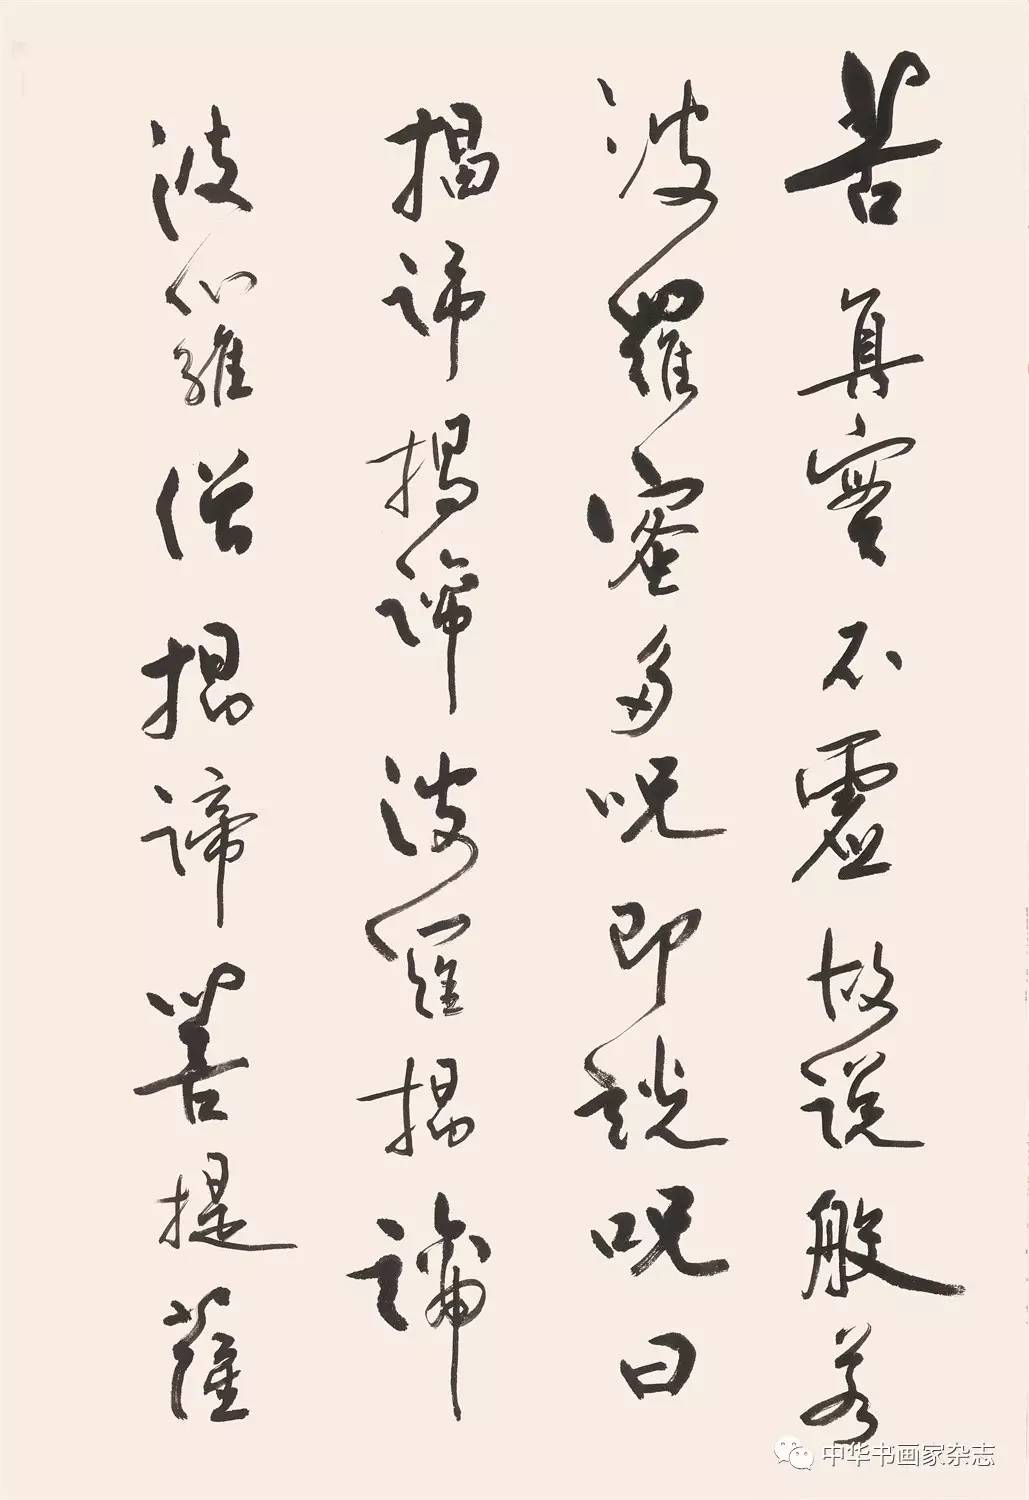 苦真實不虛故說般若
波羅蜜多呪即說呪曰
揭諦揭諦波羅揭諦
波羅僧揭諦菩提薩
中华书画家杂志